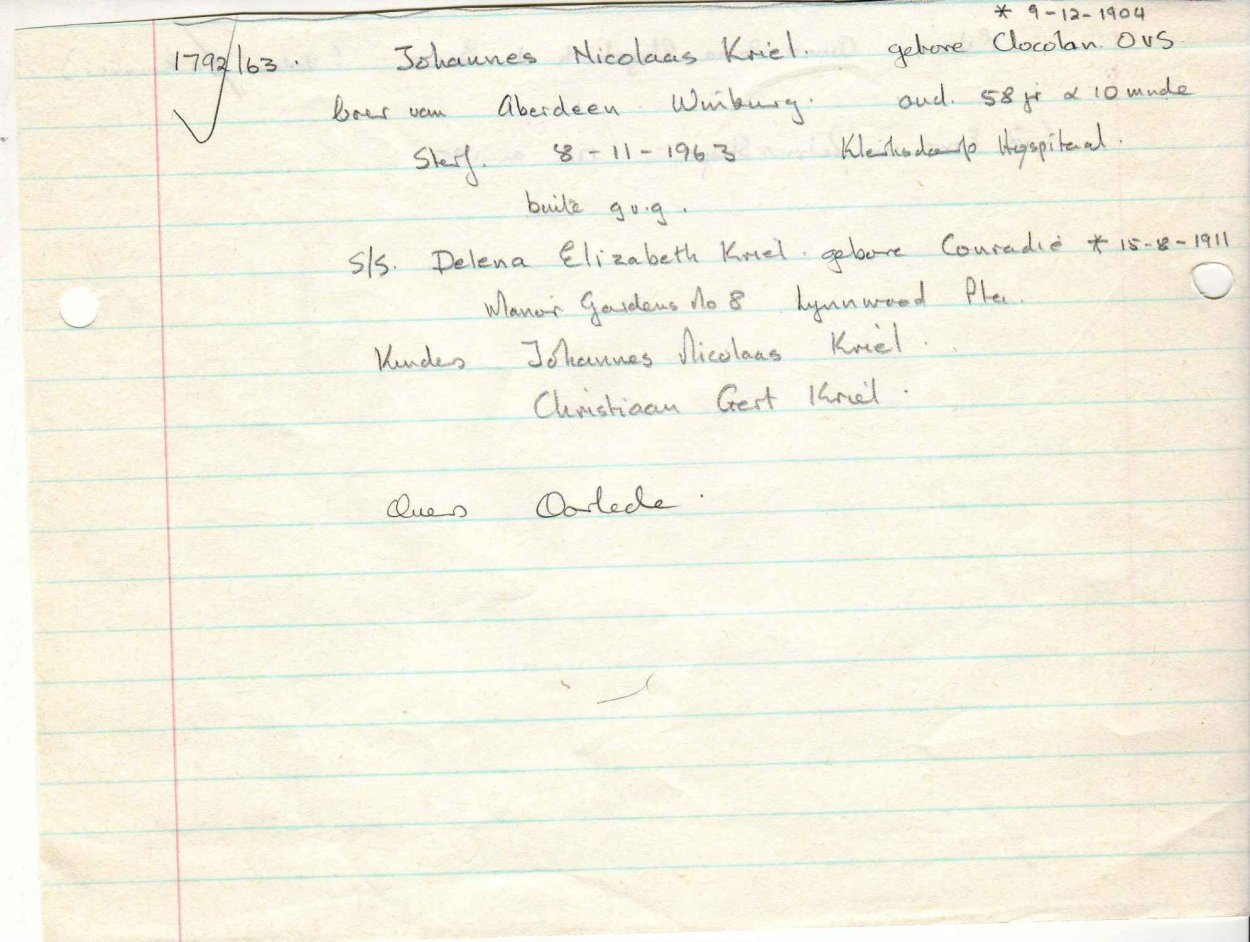 * 9-12-1904
1792/63. Johannes Nicolaas Kriel. gebore Clocolan. OVS
boer van Aberdeen. Winburg. oud. 58 jr & 10 mnde
Sterf. 8-11-1963 Klerksdorp Hospitaal.
buite g.v.g.
S/S. Delena Elizabeth Kriel. gebore Conradie * 15-8-1911
Manor Gardens No 8 Lynnwood Pta.
Kinders Johannes Nicolaas Kriel.
Christiaan Gert Kriel.
Ouers Oorlede.